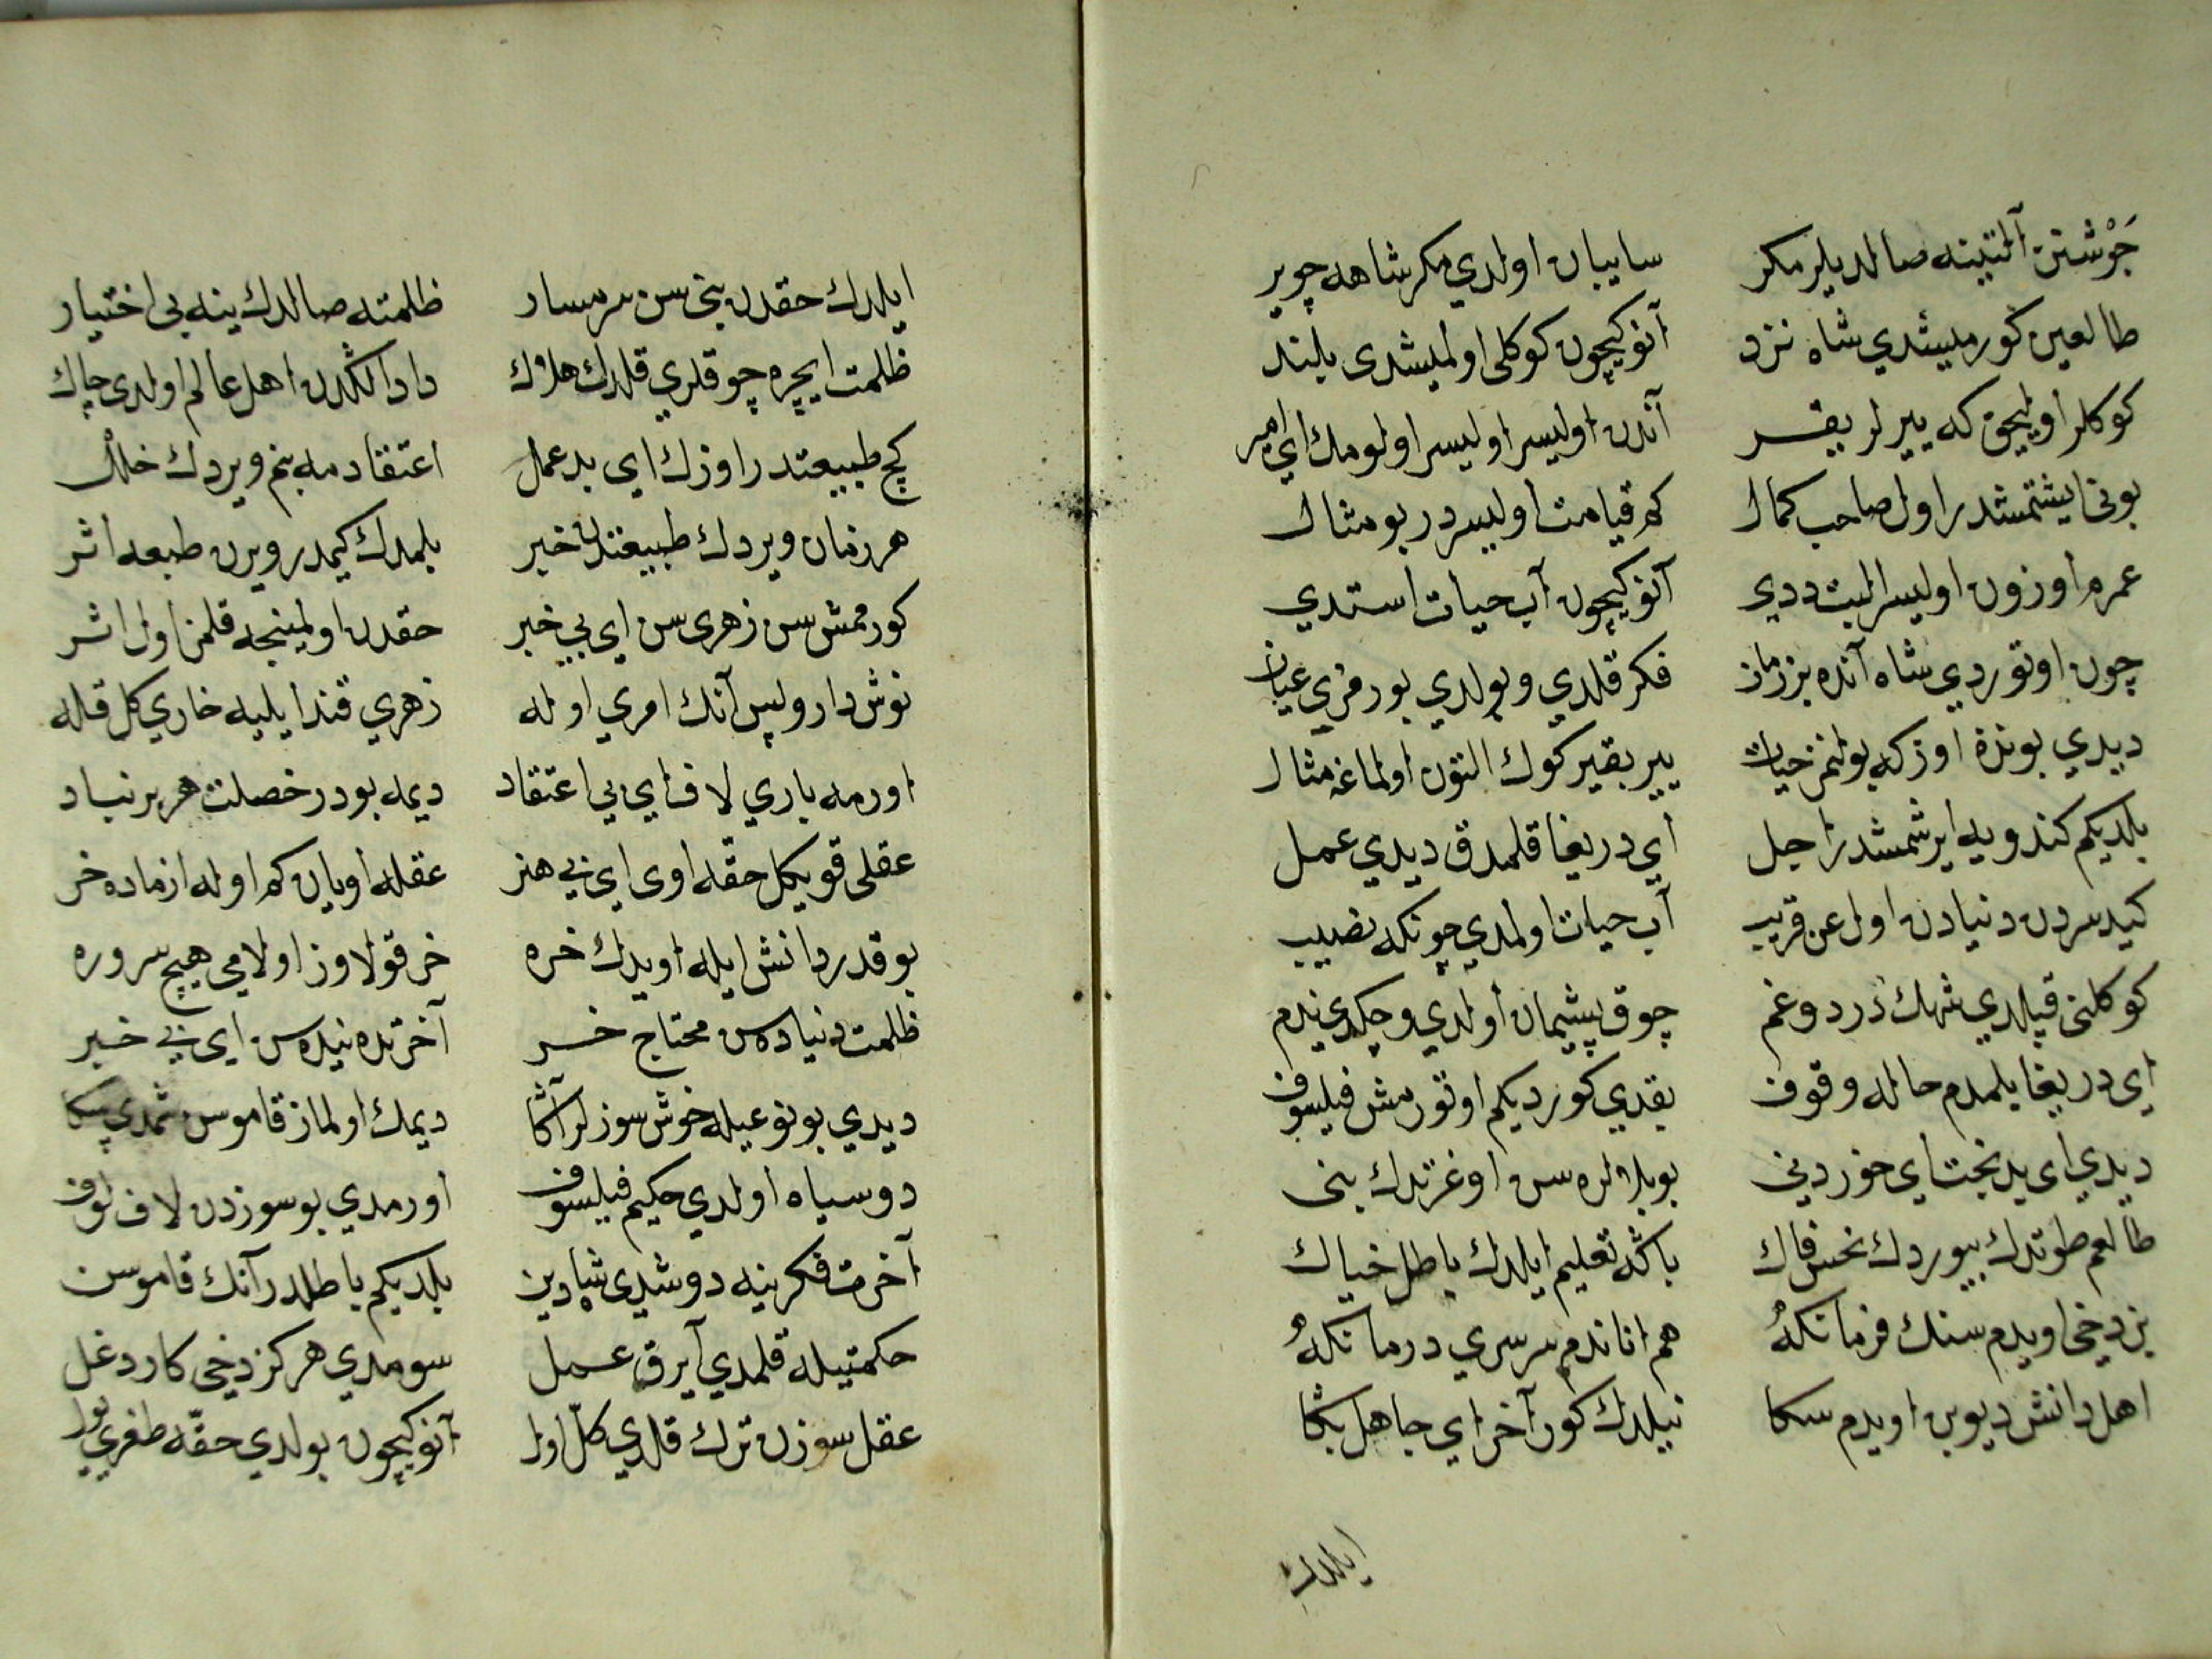 جَوْشنن آلتینه صالدیلر مکر سایبان اولدي مکر شاهه چویر
طالعین کورملیشدي شاه نزد آنوکیچون کوکلی اولمیشدی بلند
کوکلر اولیجق که ییرلر بقر آندن اولیسر اولیسر اولومك اي امیر
بونی ایشتمشدر اول صاحب کمال کم قیامت اولیسردر بو مثال
عمرم اوزون اولیسر البت ددي آنوکیچون آب حیات استدي
چون اوتوردي شاه آنده بر زمان فکر قلدي و بولدي بو رمزي عیان
دیدي بوندن اوزکه بولنمز حیات ییر بقیر کوك التون اولماغه مثال
بلدیکم کندویه ایرشمشدر اجل اي دریغا قلمدق دیدي عمل
کیدسردن دنیادن اول عن قریب آب حیات اولمدي چونکه نصیب
کوکلنی قپلدي شهك درد و غم چوق پشیمان اولدي و چکدي ندم
اي دریغا بلمدم حاله وقوف بقدي کوردیکم اوتورمش فیلسوف
دیدي اي بدبخت اي خور دني بو بلالره سن اوغرتدك بنی
طالعم طوتدك بیوردك نحس فال باکه تعلیم ایلدك باطل خیال
بز دخی اویدم سنك فرمانکه هم اناندم سرسري درمانکه
اهل دانش دیوبن اویدم سکا نیلدك کور آخر اي جاهل بکا
ایلدك
ایلدك حقدن بنی سن شرمسار ظلمته صالدك ینه بی اختیار
ظلمت ایچره چوقلري قلدك هلاك داد الکدن اهل عالم اولدی چاك
کچ طبیعتدر اوزك اي بد عمل اعتقادمه بنم ویردك خلل
هر زمان ویردك طبیعتدن خبر بلمدك کیمدر ویرن طبعه اثر
کورممش سن زهری سن اي بی خبر حقدن اولمینجه قلمز اول اثر
نوش دارو لپس آنك امري اوله زهري قند ایلیه خاري کل قله
اورمه باري لاف اي بی اعتقاد دیمه بودر خصلت هر بر نبات
عقلی قویکل حقه اوی اي بی هنر عقله اویان کم اوله ازماده خر
بو قدر دانش ایله اویدك خره خر قولاوز اولامی هیچ سروره
ظلمت دنیاده سن محتاج خر آخرتده نیدسن اي بی خبر
دیدي بو نوعیله خوش سوزلر آکا دیمك اولماز قاموسن شمدي سکا
دوسیاه اولدي حکیم فیلسوف اورمدي بو سوزدن لاف لوف
آخرت فکرینه دوشدی شاه دین بلدیکم باطلدر آنك قاموسن
حکمتیله قلمدي آیرق عمل سومدي هرکز دخی کار دغل
عقل سوزن ترك قلدي کلّ اول آنوکیچون بولدي حقّه طغري یول